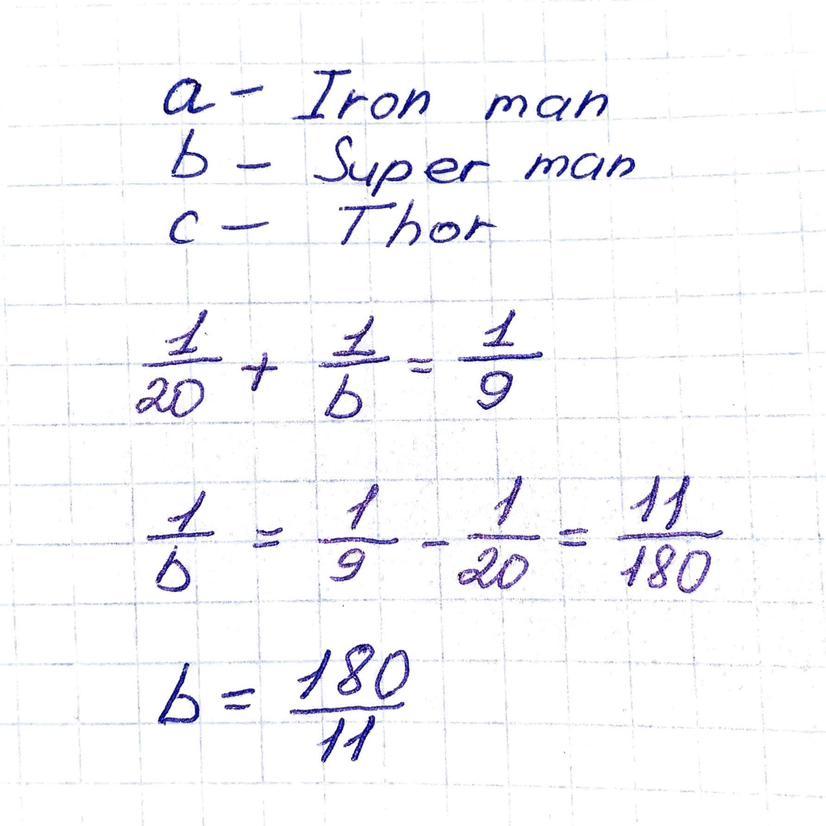 a - Iron man
b - Super man
c - Thor
1/20 + 1/b = 1/9
1/b = 1/9 - 1/20 = 11/180
b = 180/11